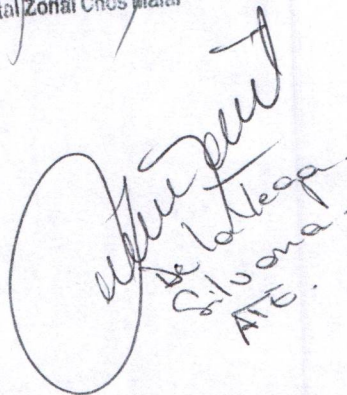 Zonal Chos Malal
De la Vega
Silvana.
ATE.